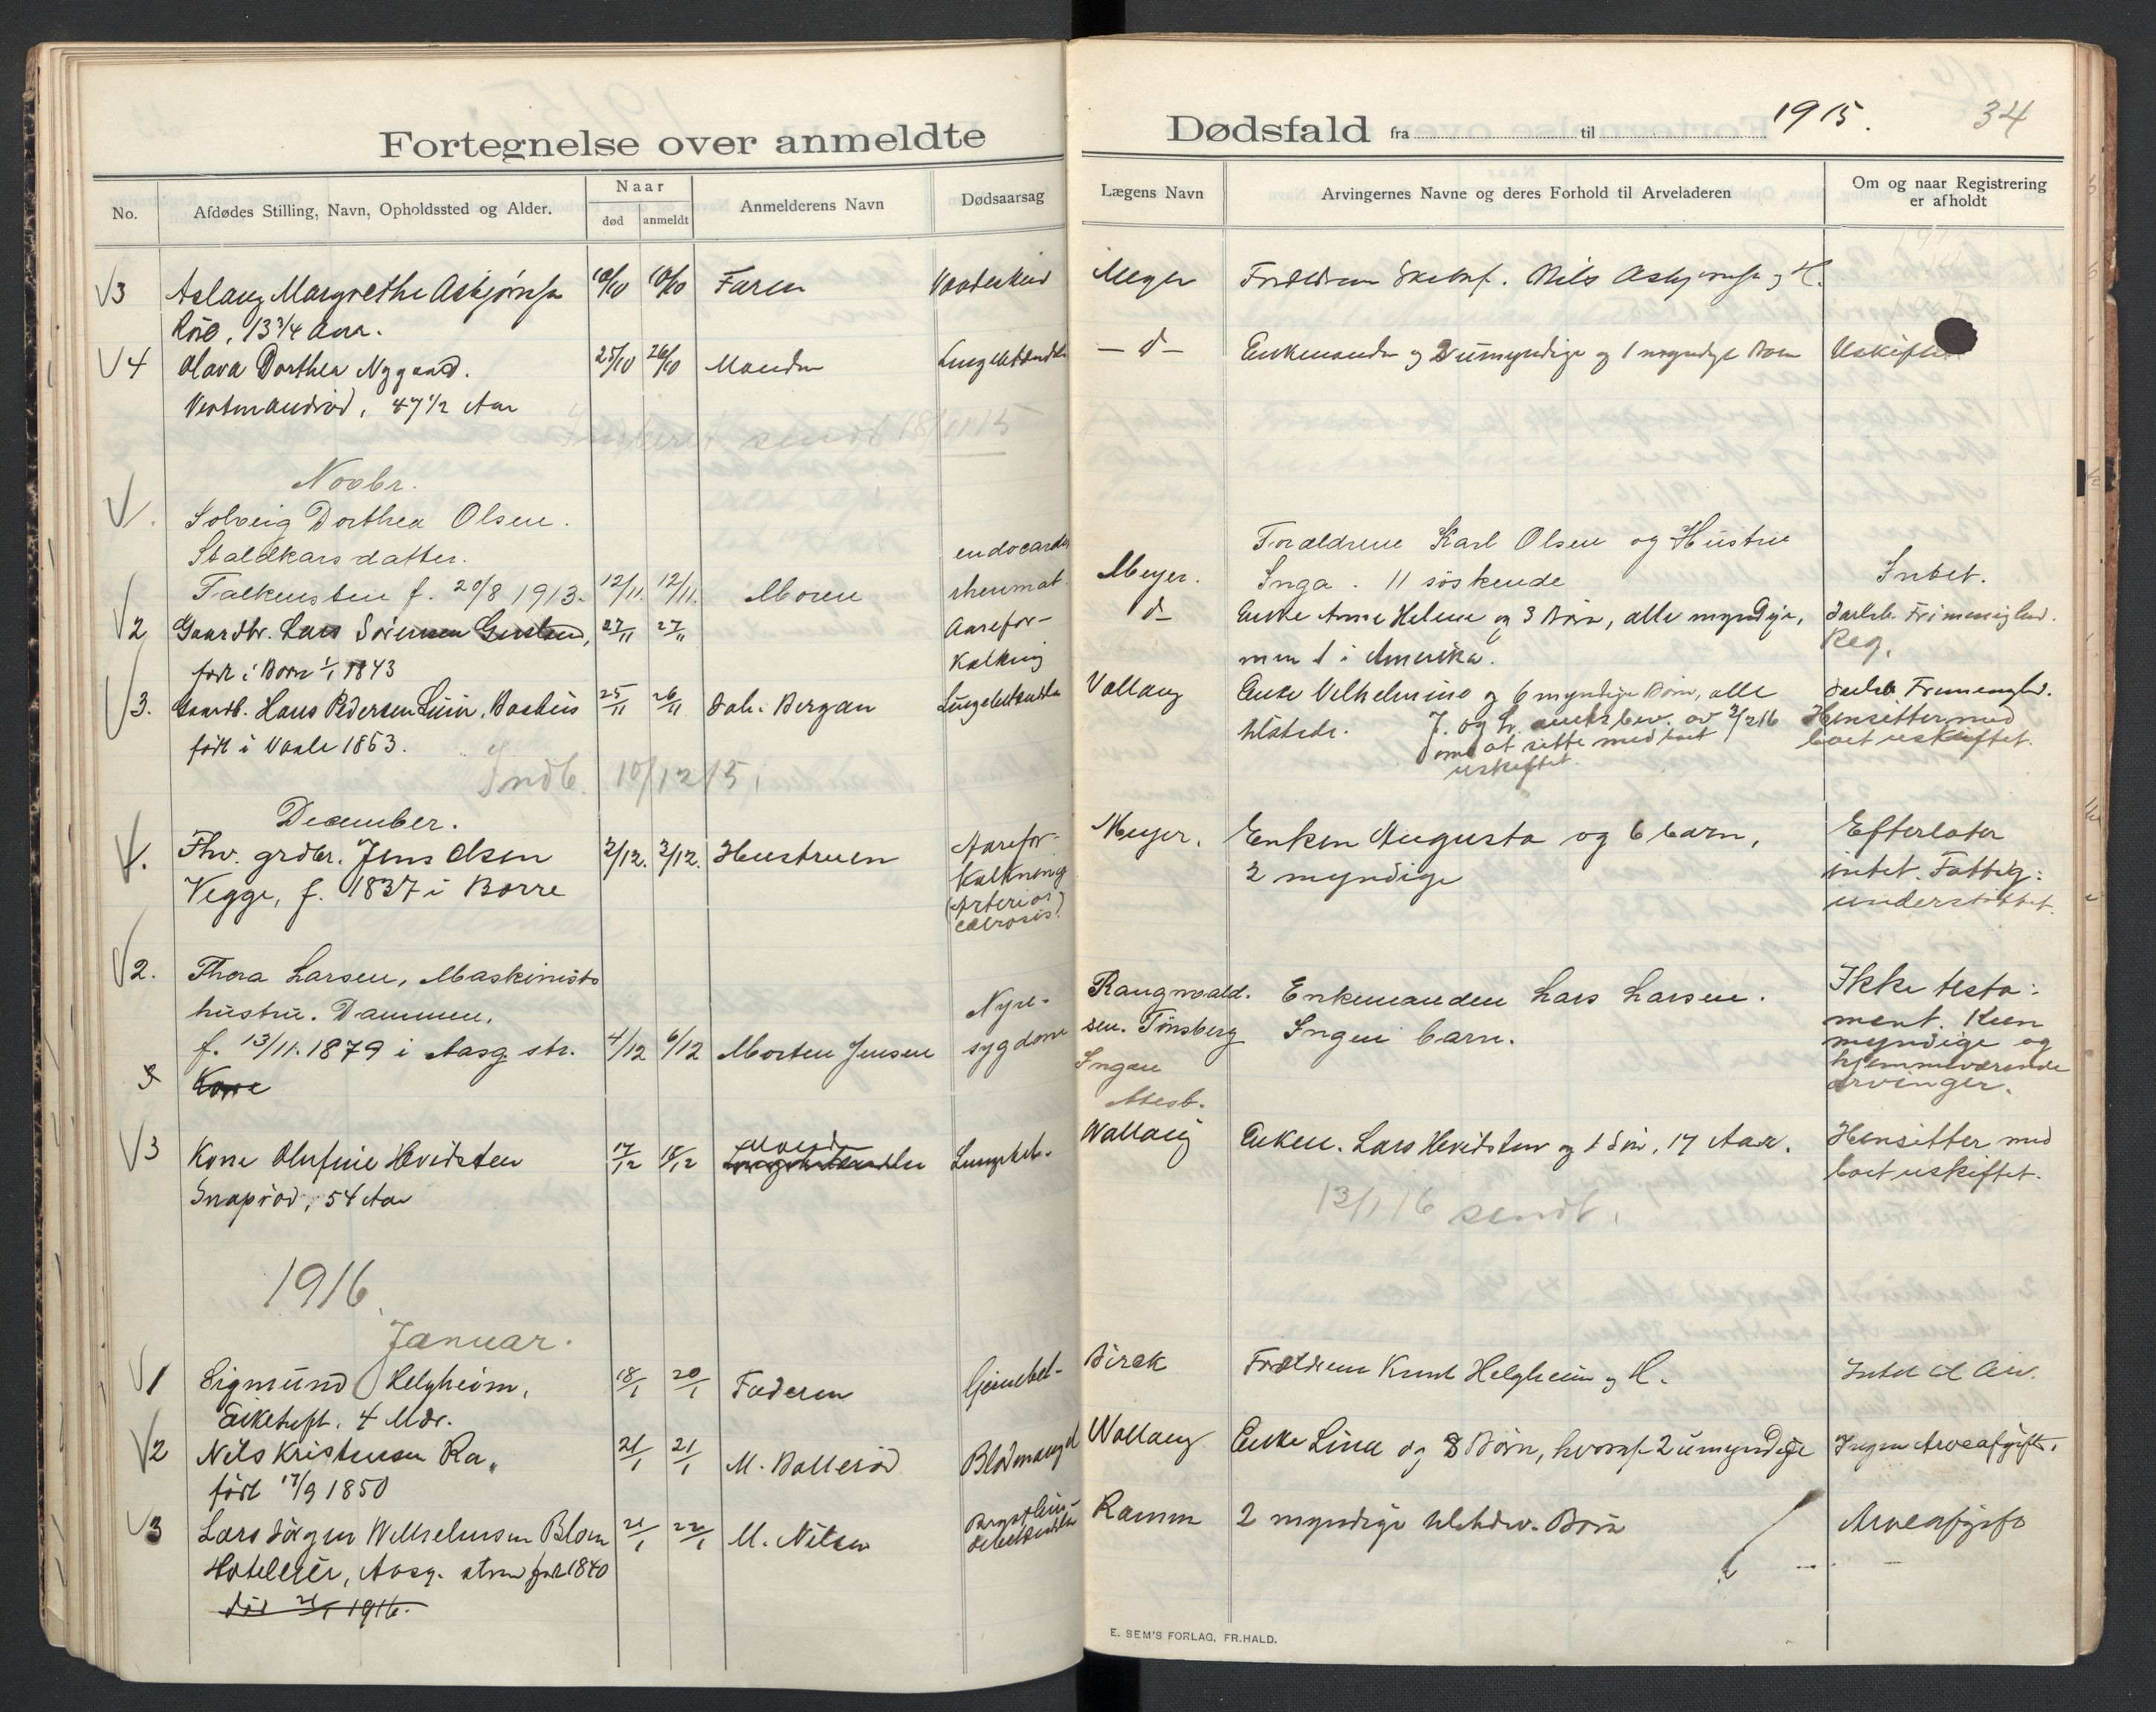 1915. 34
Fortegnelse over anmeldte Dødsfald fra til
No. Afdødes Stilling, Navn, Opholdssted og Alder. Naar død anmeldt Anmelderens Navn Dødsaarsag Lægens Navn Arvingernes Navne og deres Forhold til Arveladeren Om og naar Registrering er afholdt
3 Aslaug Margrethe Askjønsen 10/10 Faren Meyer Nils
13 3/4 Aar.
4 Olava Dorthea Nygaard. 25/10 26/10 Manden — d — Enkemanden og 2 umyndige og 1 myndige Børn Uskiftet
47 1/2 Aar
sendt 18/11 15
Novbr.
Solveig Dorthea Olsen.
Staldkarsdatter. endocardit Forældrene Karl Olsen og Hustru
Falkensten f. 20/8 1913. 12/11. 12/11. Moren rheumat. Meyer. Inga. 11 söskende Intet.
2 Gaardbr. Lars Sörensen 27/11 27/11 Aarefor- d— Enke Anne Helene og 3 Börn, alle myndige,
født i Borre 1/1 1843 kalkning men 1 i Amerika. Reg.
3. Gaardb. Hans Pedersen 25/11 26/11 Joh. Bergan Lungebetændelse Vollaug Enke Vilhelmine og 6 myndige Børn, alle
født i Vaale 1853. tilstede. om at sitte med boet uskiftet Hensitter med
boet uskiftet.
Indb. 10/12 15.
December.
1. Fhv. grdbr. Jens Olsen 2/12. 3/12. Hustruen Aarefor- Meyer. Enken Augusta og 6 barn, Efterlater
Vegge, f. 1837 i Borre kalkning 2 myndige intet. Fattig-
(Arterios understöttet.
clerosis.)
2. Thora Larsen, Maskinists Rangwald- Enkemanden Lars Larsen. Ikke testa-
hustru. Dammen, Nyre- sen. Tönsberg Ingen barn. ment. Kun
f. 13/11. 1879 i Aasg. str. 4/12 6/12 Morten Jensen sygdom Ingen myndige og
3 Kone Attest. hjemmeværende
arvinger.
3 Kone Olufine Hvidsten 17/12 18/12 Wollaug Lars Hvidsten og 1 Sön, 17 Aar. Hensitter med
54 Aar boet uskiftet.
13/1 16 sendt.
1916.
Januar.
1 Sigmund Helgheim, 18/1 20/1 Faderen Forældrene Knut Helgheim og H.
4 Mdr.
2 Nils Kristensen Ra, 21/1 21/1 M. Bollerød Blodmangel Wollaug Enke Lina og 8 Børn, hvoraf 2 umyndige Ingen Arveafgift.
født 17/9 1850
3 Lars Jörgen Wilhelmsen Blom 21/1 22/1 M. Nilsen Ramm 2 myndige Børn Arveafgift
Hoteleier, Aasg. strand født 1840
død 21/1 1916.
E. SEM'S FORLAG, FR.HALD.